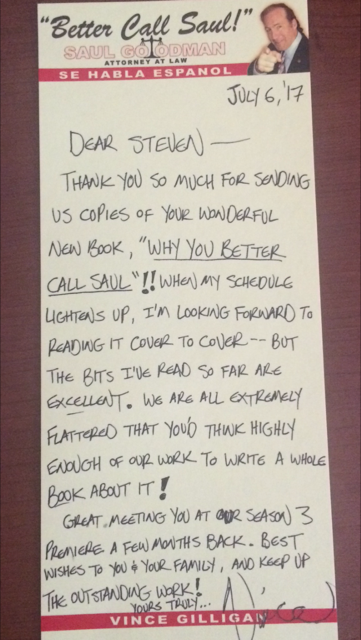 "Better Call Saul!"
SAUL GOODMAN
ATTORNEY AT LAW
SE HABLA ESPANOL
JULY 6, '17
DEAR STEVEN —
THANK YOU SO MUCH FOR SENDING
US COPIES OF YOUR WONDERFUL
NEW BOOK, "WHY YOU BETTER
CALL SAUL"!! WHEN MY SCHEDULE
LIGHTENS UP, I'M LOOKING FORWARD TO
READING IT COVER TO COVER -- BUT
THE BITS I'VE READ SO FAR ARE
EXCELLENT. WE ARE ALL EXTREMELY
FLATTERED THAT YOU'D THINK HIGHLY
ENOUGH OF OUR WORK TO WRITE A WHOLE
BOOK ABOUT IT!
GREAT MEETING YOU AT OUR SEASON 3
PREMIERE A FEW MONTHS BACK. BEST
WISHES TO YOU & YOUR FAMILY, AND KEEP UP
THE OUTSTANDING WORK!
YOURS TRULY...
Vince
VINCE GILLIGAN